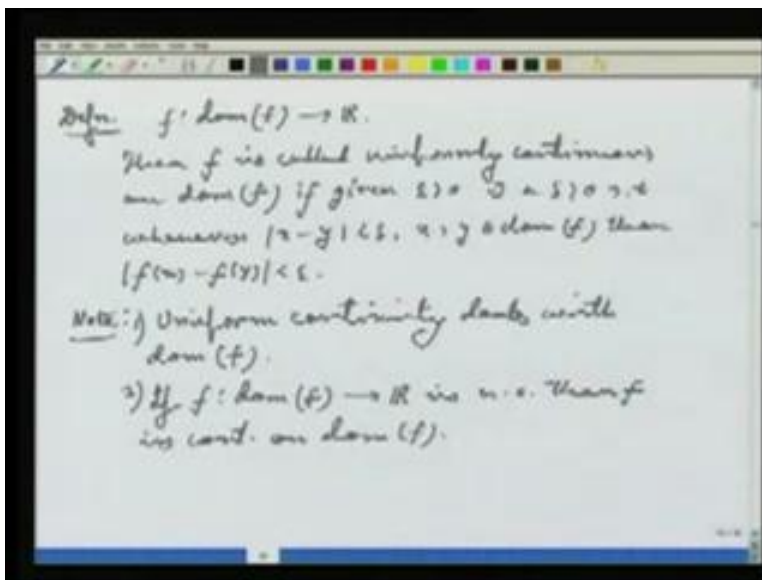 Defn. f : dom(f) → ℝ.
Then f is called uniformly continuous
on dom(f) if given ε>0 ∃ a δ>0 s.t
whenever |x-y|<δ, x, y ∈ dom(f) then
|f(x) - f(y)| < ε.
Note: 1) Uniform continuity deals with
dom(f).
2) If f : dom(f) → ℝ is u.c. then f
is cont. on dom(f).